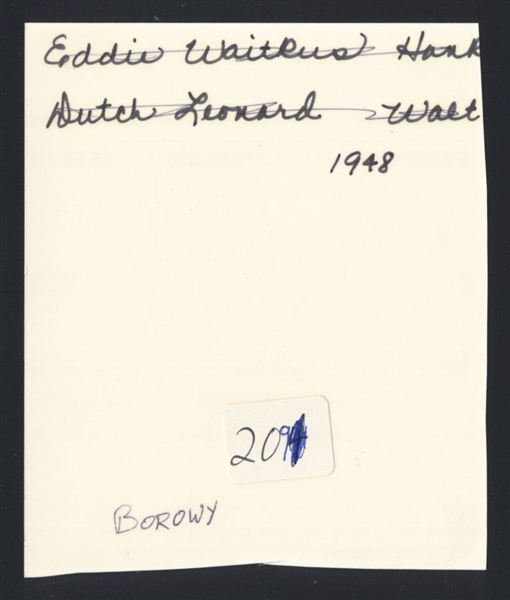 Eddie Waitkus Hank
Dutch Leonard Walt
1948
209
BOROWY